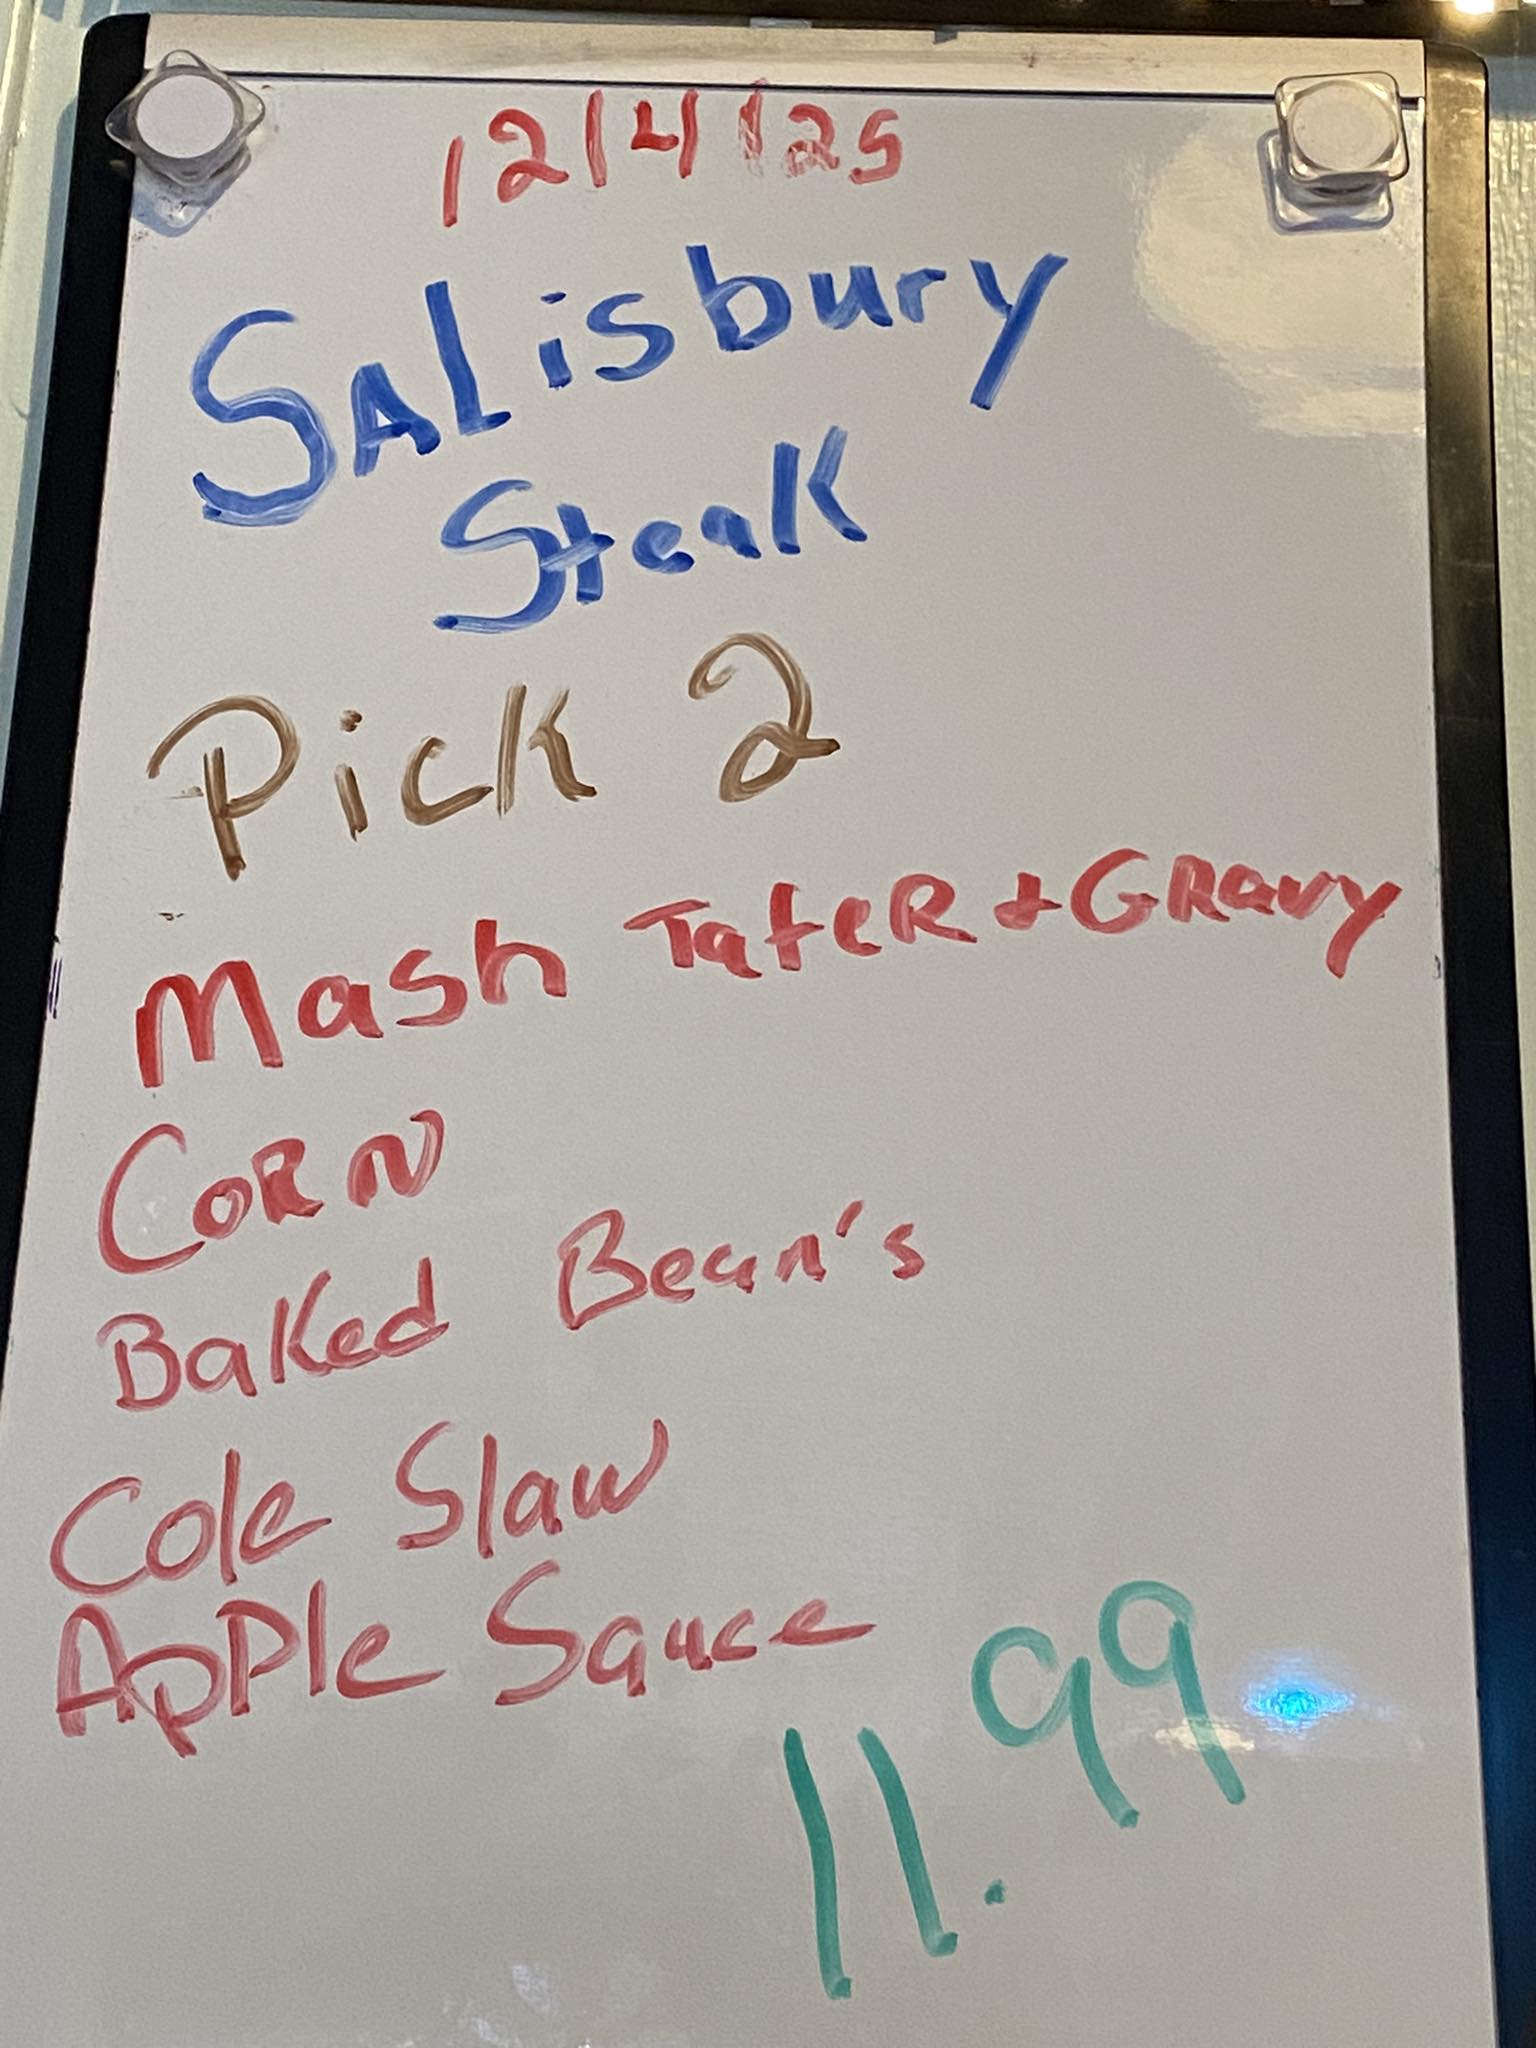 12/4/25
SALisbury
Steak
Pick 2
Mash Tater + Gravy
Corn
Baked Bean's
Cole Slaw
Apple Sauce
11.99